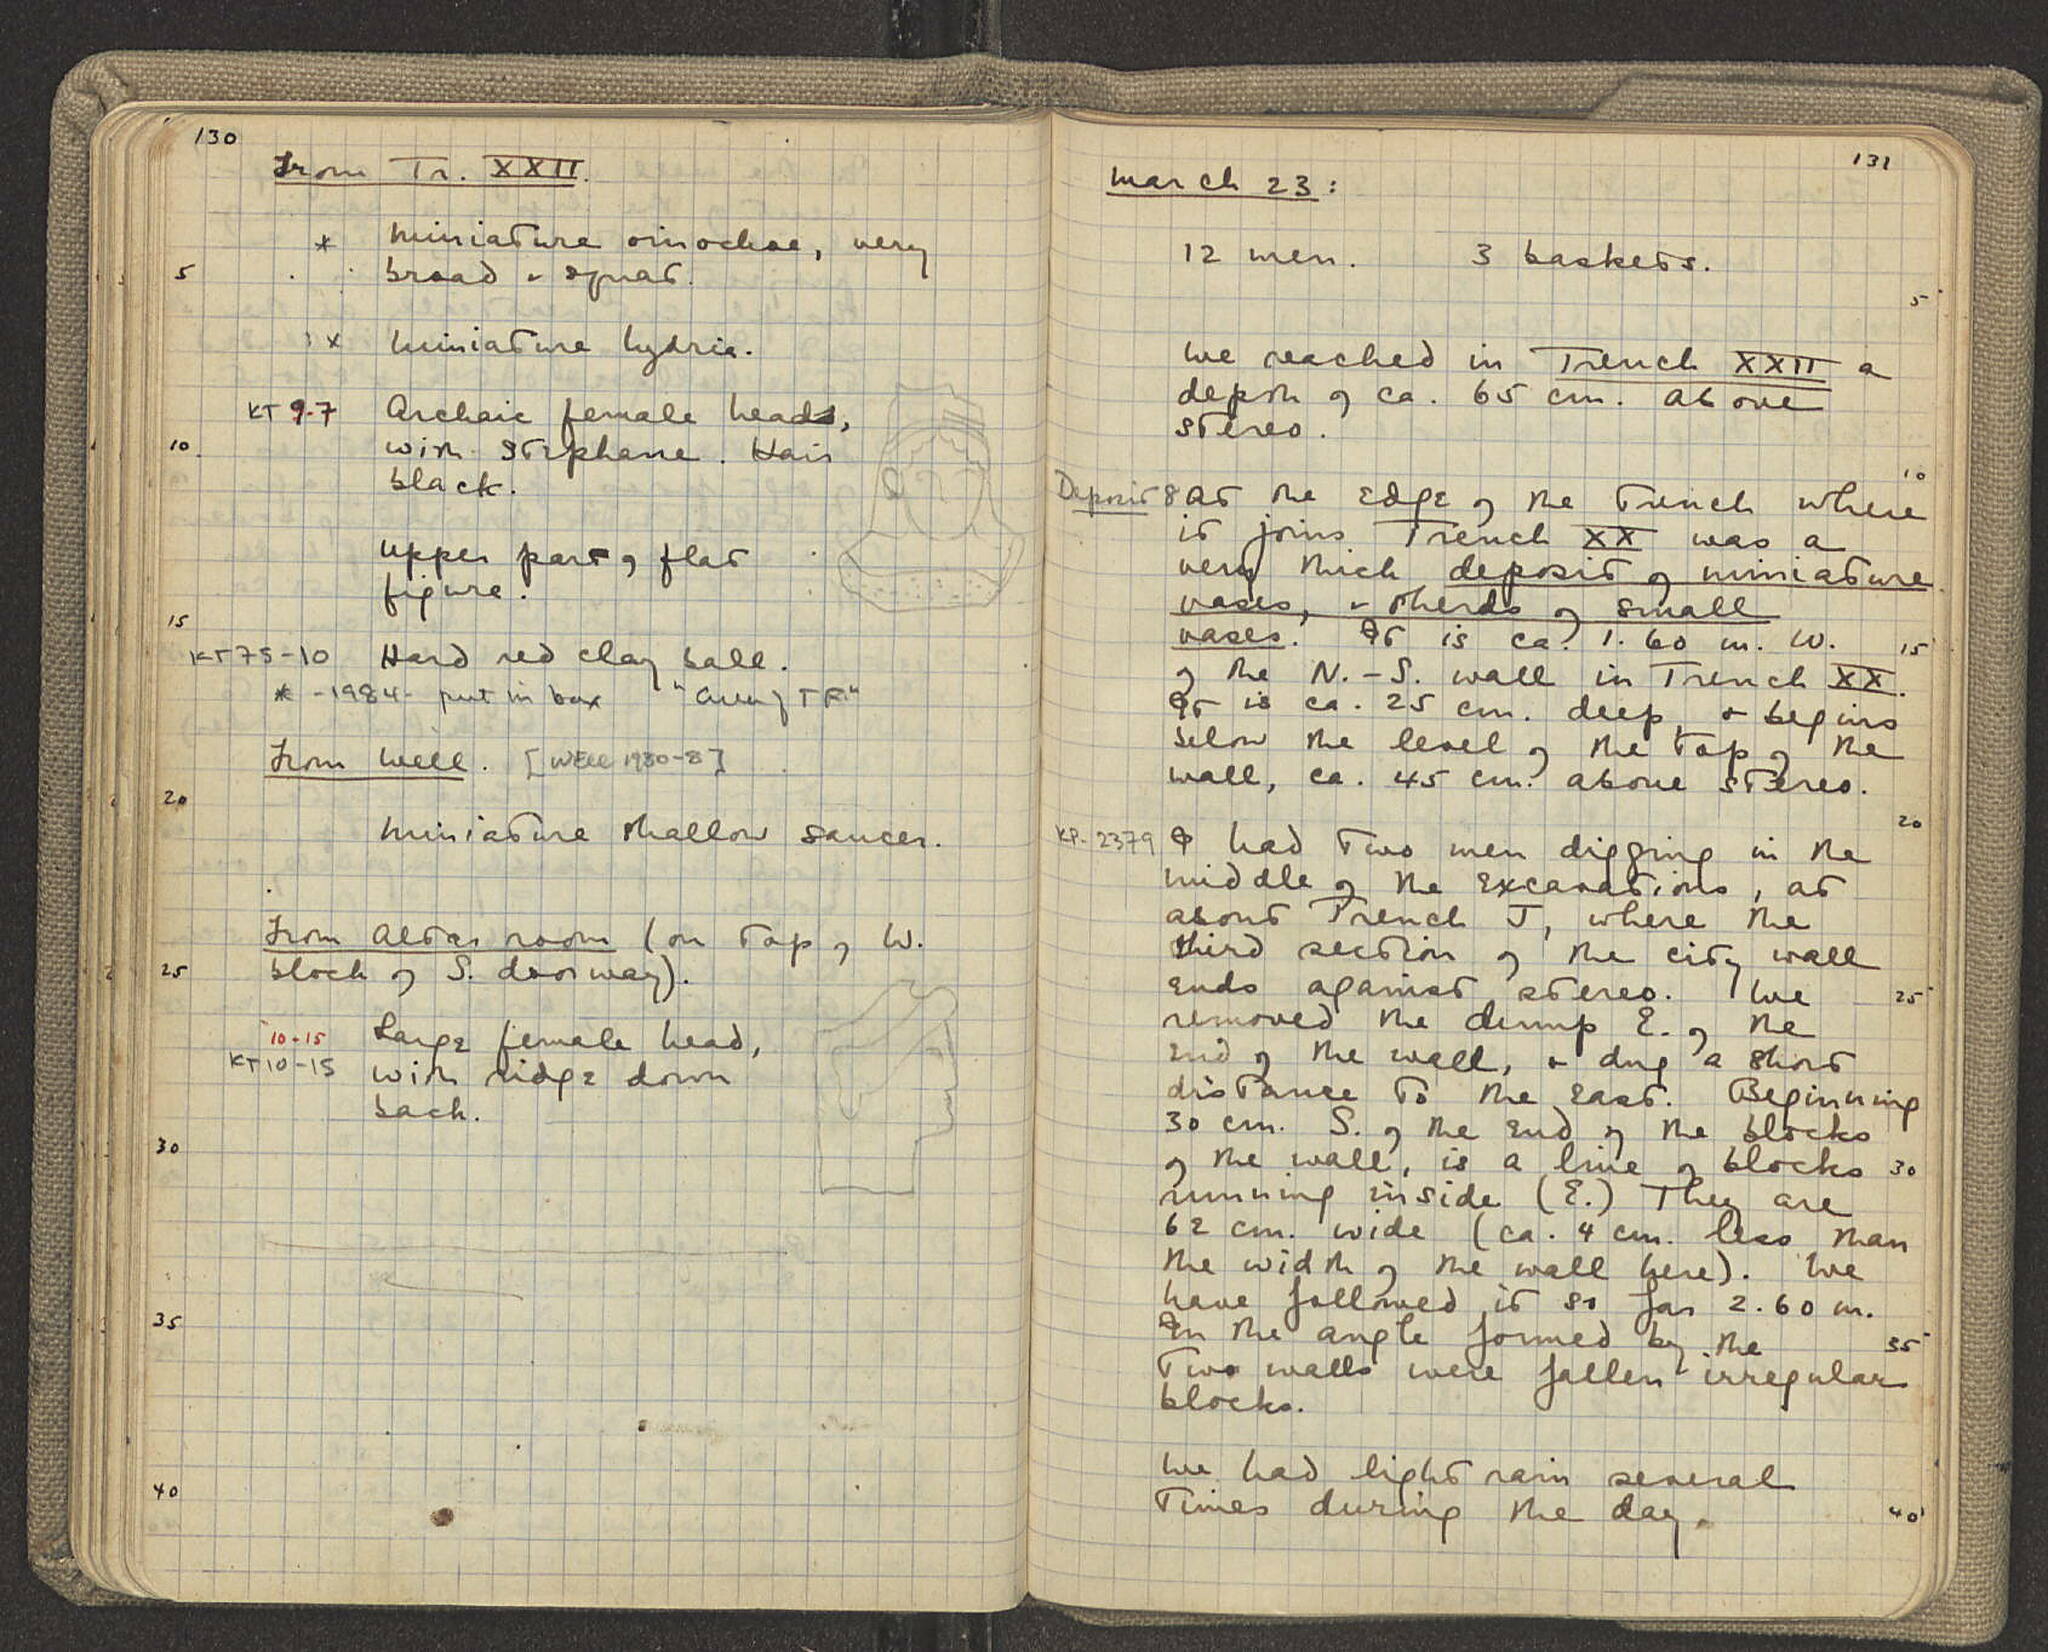 130
From Tr. XXII.
* miniature oinochoe, very
5 broad & squat.
x miniature hydria.
KT 9-7 Archaic female head,
10 with stephane. Hair
black.
upper part of flat
figure.
15
KT75-10 Hard red clay ball.
* -1984- put in box "Area of TF"
From well. [Well 1930-8]
20
miniature shallow saucer.
From Altar room (on top of W.
25 block of S. doorway).
10-15 Large female head,
KT10-15 with ridge down
back.
30
35
40
131
March 23:
12 men. 3 baskets.
5
We reached in Trench XXII a
depth of ca. 65 cm. above
stereo.
10
Deposit 8 At the edge of the trench where
it joins Trench XX was a
very thick deposit of miniature
vases, & sherds of small
vases. It is ca. 1.60 m. W. 15
of the N.-S. wall in Trench XX.
It is ca. 25 cm. deep, & begins
below the level of the top of the
wall, ca. 45 cm. above stereo.
20
KP-2379 I had two men digging in the
middle of the excavations, at
about Trench J, where the
third section of the city wall
ends against stereo. We 25
removed the dump E. of the
end of the wall, & dug a short
distance to the east. Beginning
30 cm. S. of the end of the blocks
of the wall, is a line of blocks 30
running inside (E.) They are
62 cm. wide (ca. 4 cm. less than
the width of the wall here). We
have followed it so far 2.60 m.
In the angle formed by the 35
two walls were fallen irregular
blocks.
We had light rain several
times during the day. 40